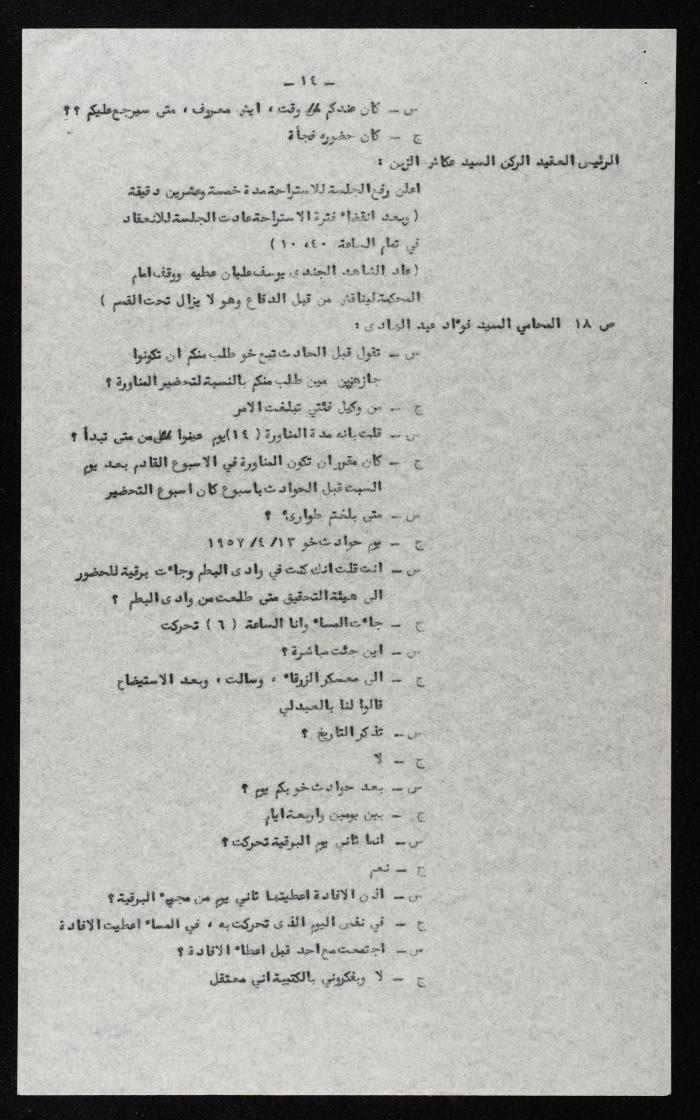 ـ ١٤ ـ
س ـ كان عندكم وقت ، ايش معروف ، متى سيرجع عليكم ؟؟
ج ـ كان حضوره فجأة
الرئيس العقيد الركن السيد عكاش الزين :
اعلن رفع الجلسة للاستراحة مدة خمسة وعشرين دقيقة
( وبعد انقضاء فترة الاستراحة عادت الجلسة للانعقاد
في تمام الساعة ١٠،٤٠ )
(عاد الشاهد الجندى يوسف عليان عطيه ووقف امام
المحكمة ليناقش من قبل الدفاع وهو لا يزال تحت القسم )
ص ١٨ المحامي السيد فوءاد عبد الهادى :
س ـ تقول قبل الحادث تبع خو طلب منكم ان تكونوا
جازهزين مين طلب منكم بالنسبة لتحضير المناورة ؟
ج ـ من وكيل فئتي تبلغت الامر
س ـ قلت بانه مدة المناورة ( ١٤)يوم عيفوا من متى تبدأ ؟
ج ـ كان مقرر ان تكون المناورة في الاسبوع القادم بعد يوم
السبت قبل الحوادث باسبوع كان اسبوع التحضير
س ـ متى بلختم طوارىء ؟
ج ـ يوم حوادث خو ١٣/ ٤/ ١٩٥٧
س ـ انت قلت انك كنت في وادى البطم وجاءت برقية للحضور
الى هيئة التحقيق متى طلعت من وادى البطم ؟
ج ـ جاءت المساء وانا الساعة ( ٦ ) تحركت
س ـ اين جئت مباشرة ؟
ج ـ الى معسكر الزرقاء ، وسالت ، وبعد الاستيضاح
قالوا لنا بالعبدلي
س ـ تذكر التاريخ ؟
ج ـ لا
س ـ بعد حوادث خو بكم يوم ؟
ج ـ بين يومين واربعة ايام
س ـ انما ثاني يوم البرقية تحركت ؟
ج ـ نعم
س ـ اذن الافادة اعطيتها ثاني يوم من مجيء البرقية ؟
ج ـ في نفس اليوم الذى تحركت به ، في المساء اعطيت الافادة
س ـ اجتمعت مع احد قبل اعطاء الافادة ؟
ج ـ لا وبفكروني بالكتيبة اني معتقل